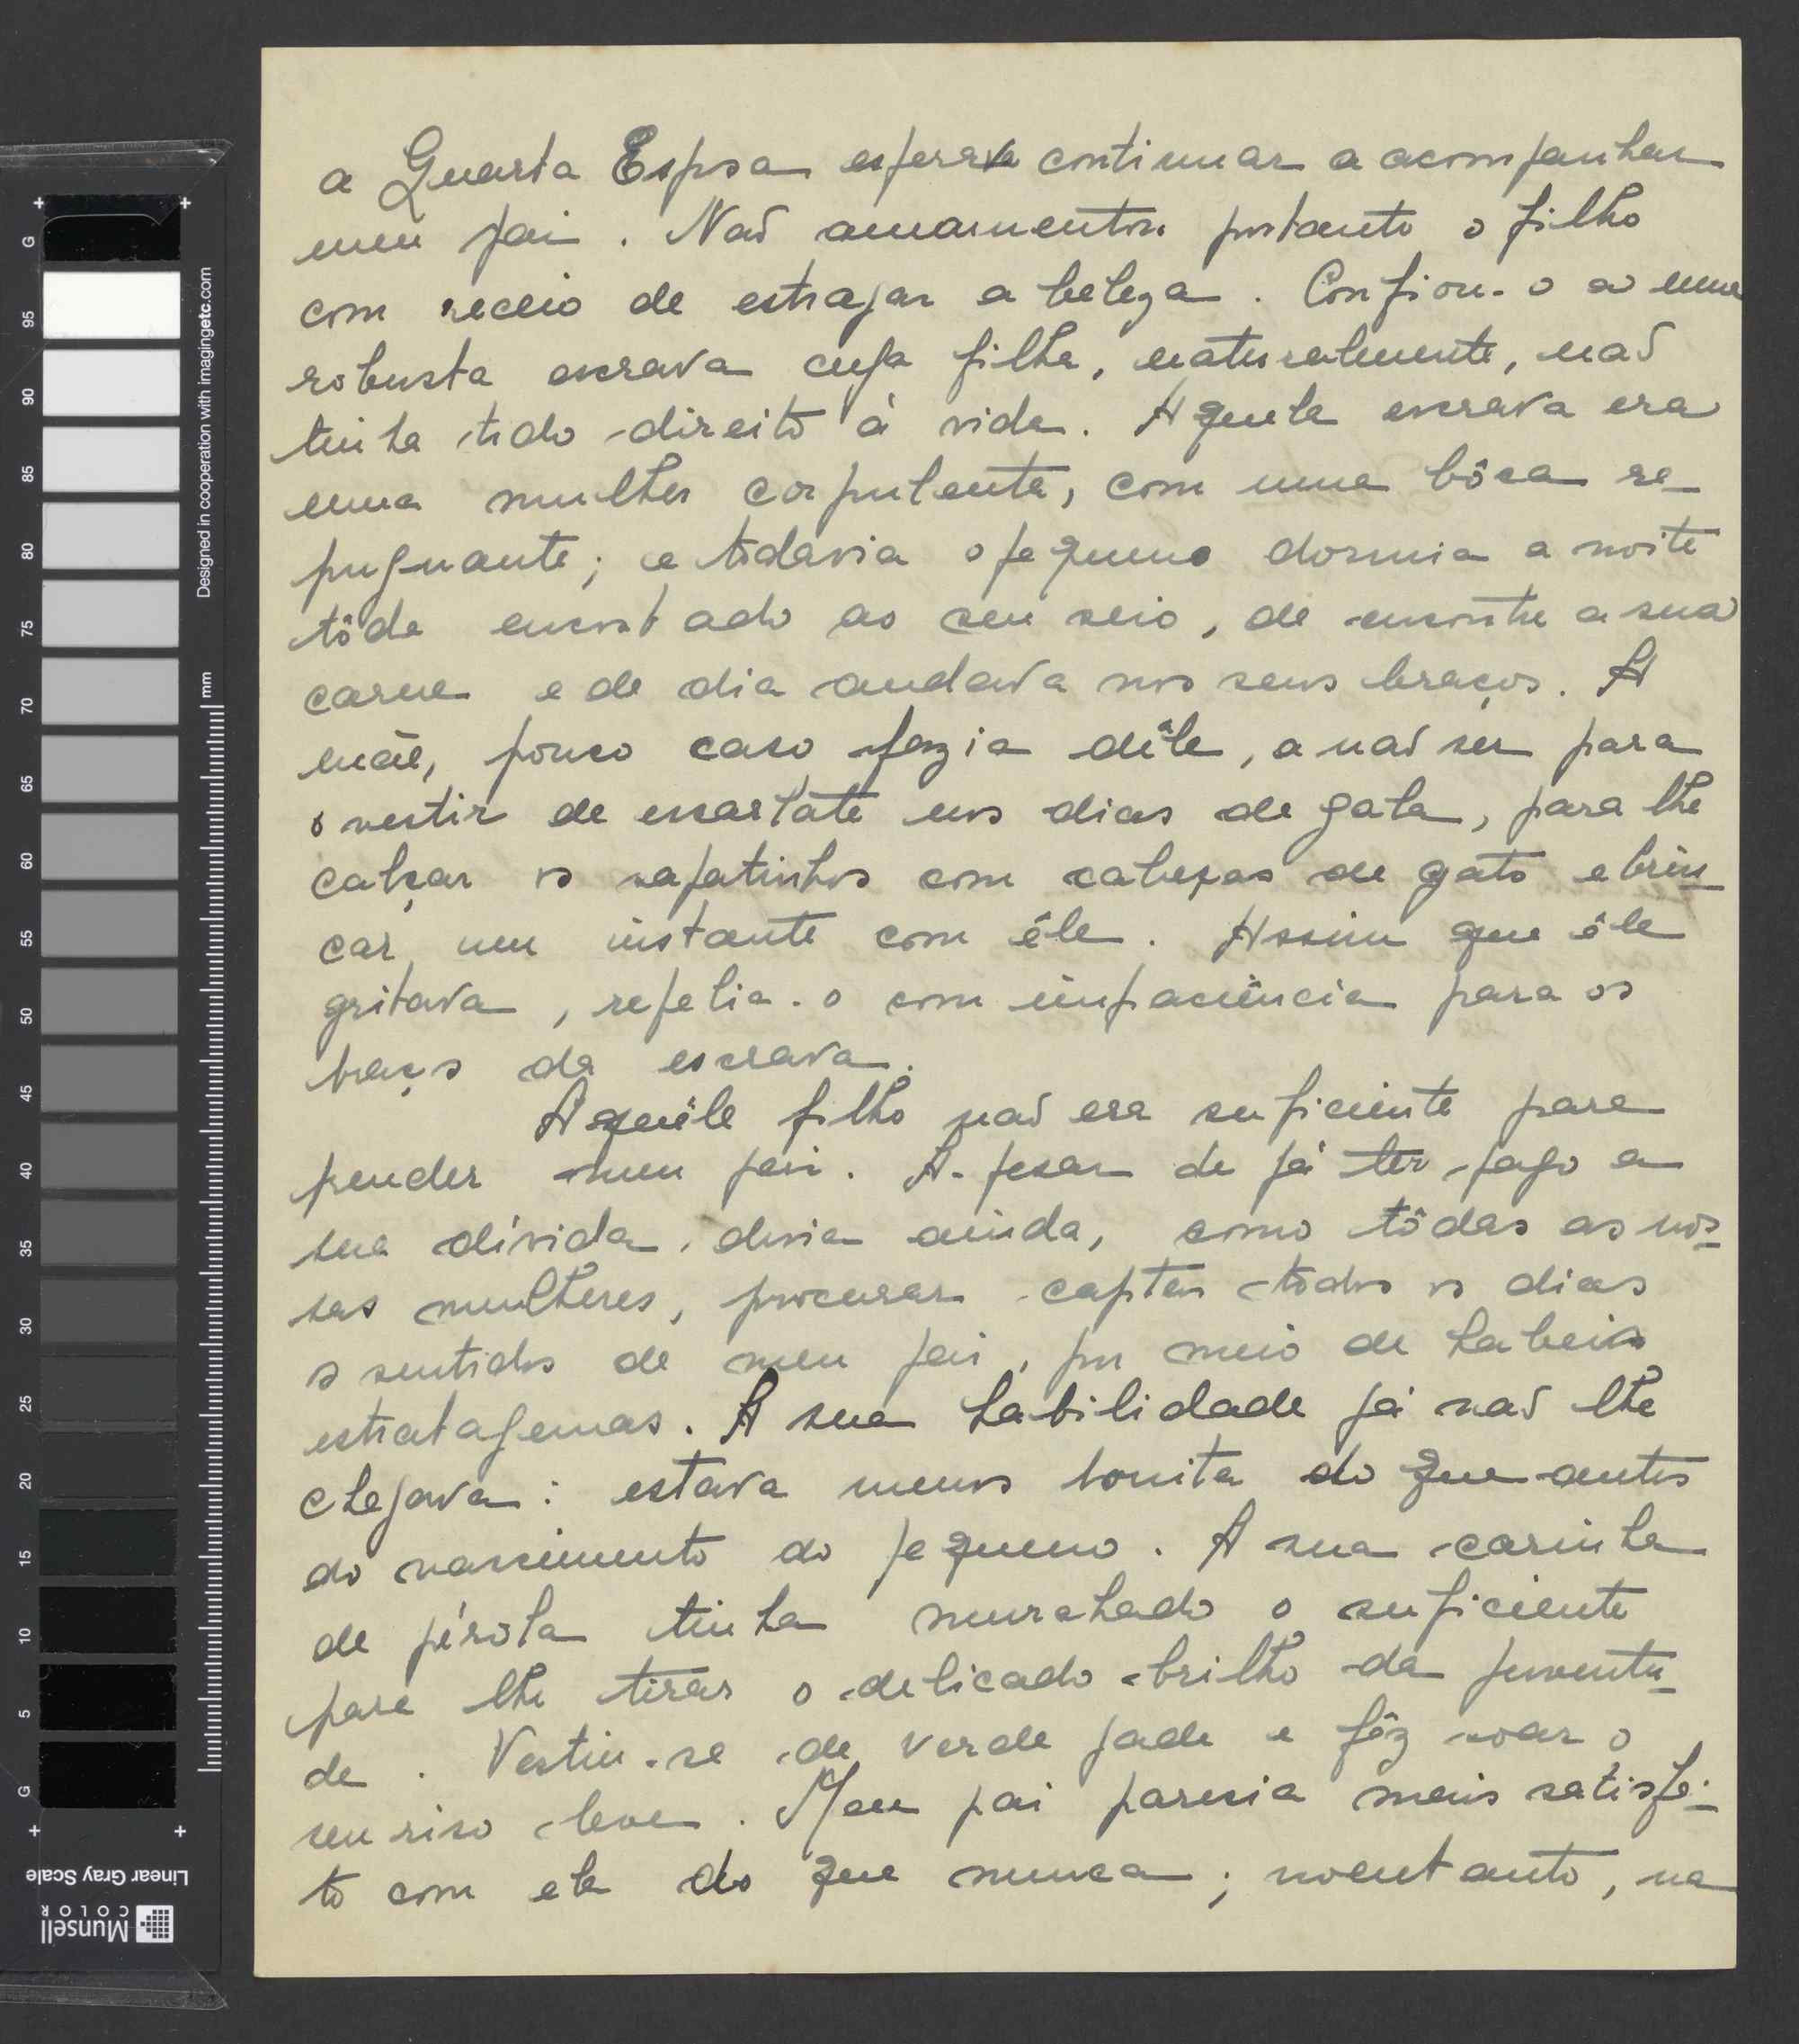 a Quarta Esposa esperava continuar a acompanhar
meu pai. Não amamentou portanto o filho
com receio de estragar a beleza. Confiou-o a uma
robusta escrava cuja filha, naturalmente, não
tinha tido direito à vida. Aquela escrava era
uma mulher corpulenta, com uma bôca re-
pugnante; e todavia o pequeno dormia a noite
tôda encostado ao seu seio, de encontro a sua
carne e de dia andava nos seus braços. A
mãe, pouco caso fazia dêle, a não ser para
o vestir de escarlate nos dias de gala, para lhe
calçar os sapatinhos com cabeças de gato e brin-
car um instante com êle. Assim que êle
gritava, repelia-o com impaciência para os
braços da escrava.
Aquêle filho não era suficiente para
prender meu pai. A-pesar de já ter pago a
sua dívida, devia ainda, como tôdas as nos-
sas mulheres, procurar captar todos os dias
os sentidos de meu pai, por meio de habeis
estratagemas. A sua habilidade já não lhe
chegava: estava menos bonita do que antes
do nascimento do pequeno. A sua carinha
de pérola tinha murchado o suficiente
para lhe tirar o delicado brilho da juventu-
de. Vestiu-se de verde jade e fêz soar o
seu riso leve. Meu pai parecia mais satisfei-
to com ela do que nunca; noentanto, na
Designed in cooperation with imagingetc.com
mm
G
95
90
85
80
75
70
65
60
55
50
45
40
35
30
25
20
15
10
5
G
Linear Gray Scale
Munsell
COLOR